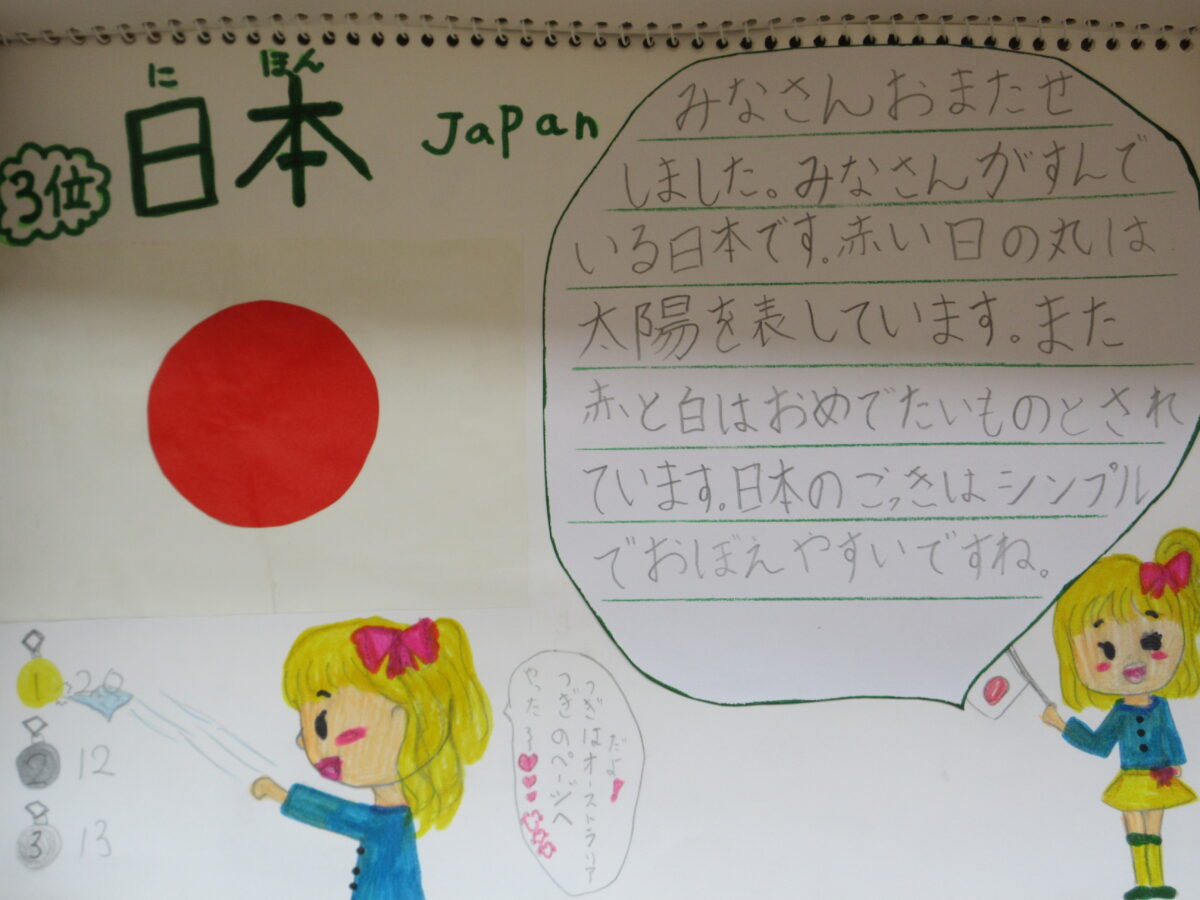 に ほん
日本
Japan
3位
みなさんおまたせ
しました。みなさんがすんで
いる日本です。赤い日の丸は
太陽を表しています。また
赤と白はおめでたいものとされ
ています。日本のごっきはシンプル
でおぼえやすいですね。
1
2 12
3 13
だよ!
つぎはオーストラリア
つぎのページへ